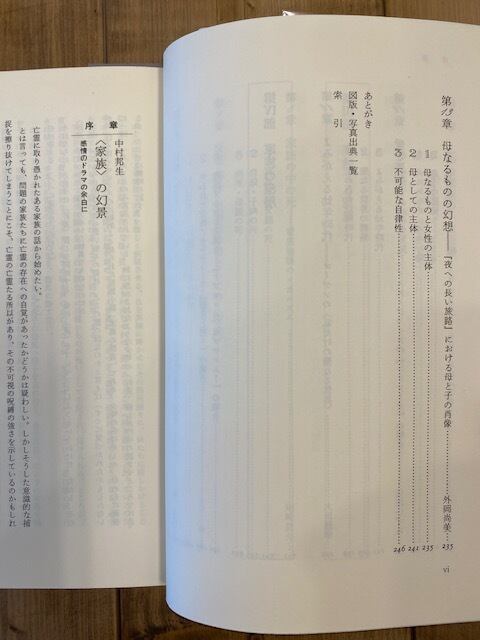 第13章 母なるものの幻想――『夜への長い旅路』における母と子の肖像……………外岡尚美…235
1 母なるものと女性の主体……………235
2 母としての主体……………241
3 不可能な自律性……………246
あとがき
図版・写真出典一覧
索引
vi
序章
中村邦生
〈家族〉の幻景
感情のドラマの余白に
亡霊に取り憑かれたある家族の話から始めたい。
とは言っても、問題の家族たちに亡霊の存在への自覚があったかどうかは疑わしい。しかしそうした意識的な捕
捉を擦り抜けてしまうことにこそ、亡霊の亡霊たる所以があり、その不可視の呪縛の強さを示しているのかもしれ